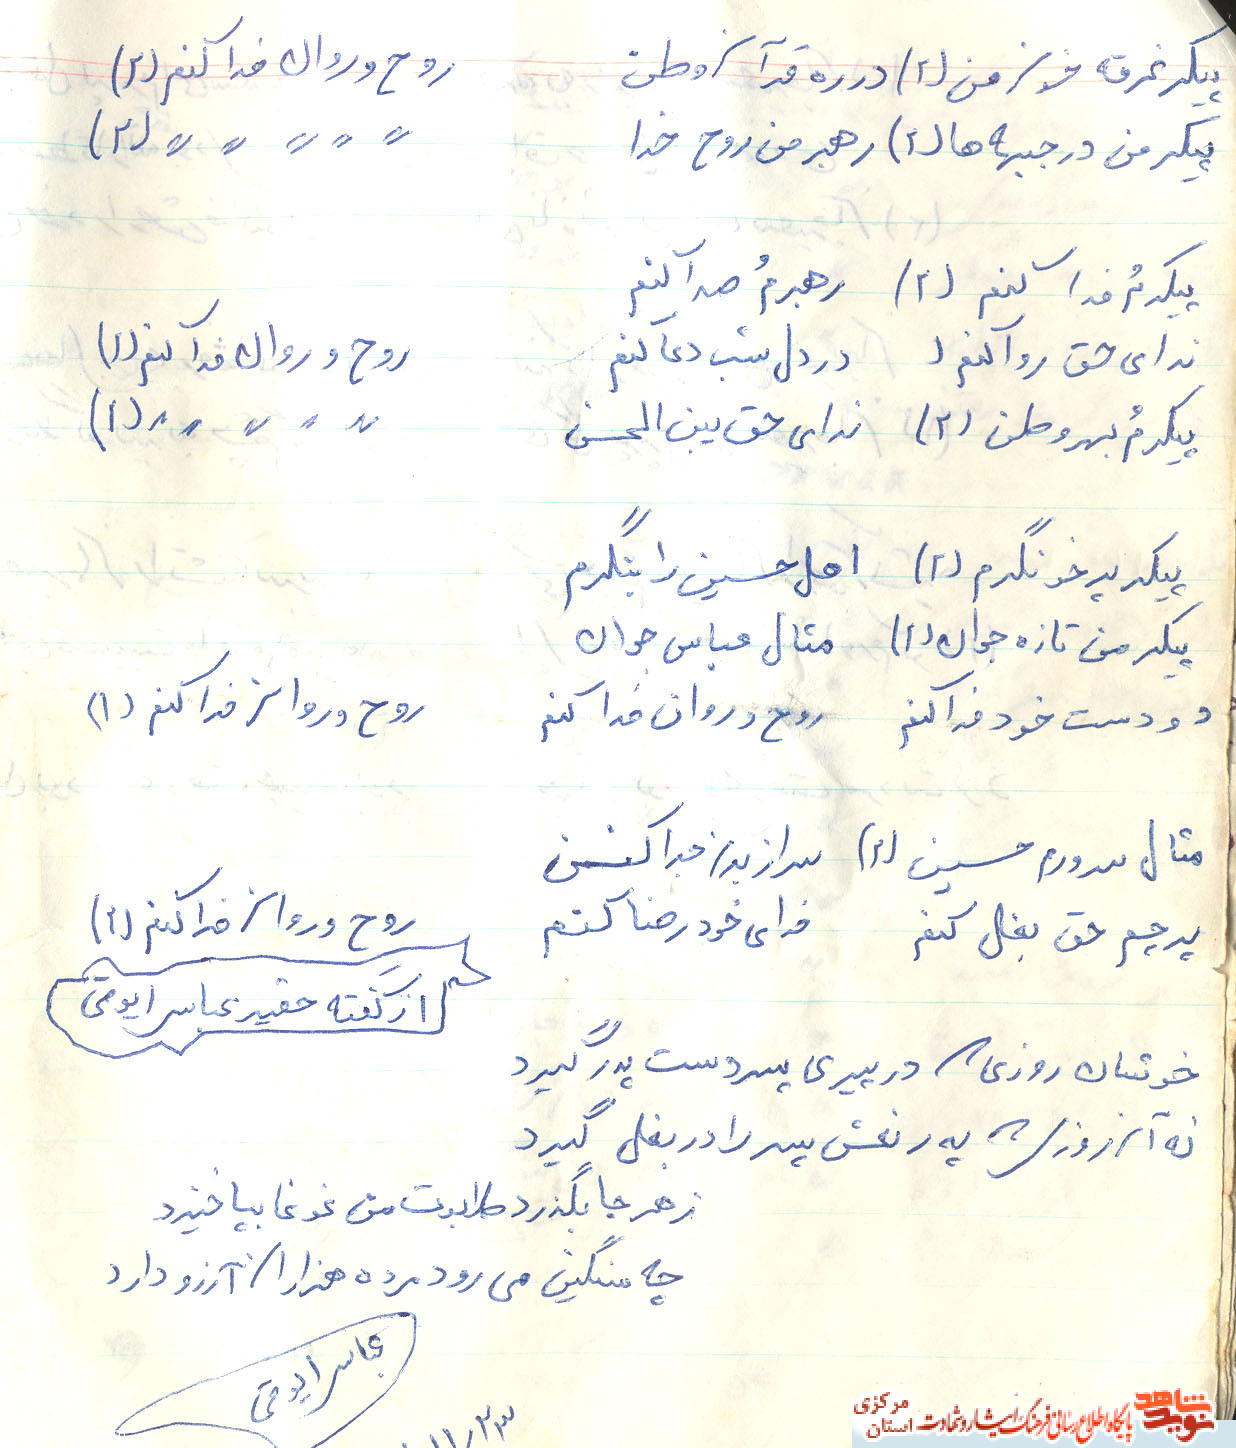 پیکر غرقه خون من (۲) در ره قرآن وطن روح و روان فدا کنم (۲)
پیکر من در جبهه ها (۲) رهبر من روح خدا 〃 〃 〃 〃 〃 (۲)
پیکرمُ فدا کنم (۲) رهبرمُ صدا کنم
ندای حق روا کنم در دل شب دعا کنم روح و روان فدا کنم (۲)
پیکرمُ بهر وطن (۲) ندای حق 〃 〃 〃 〃 〃 (۲)
پیکر پر خونگرم (۲) اهل حسین را بنگرم
پیکر من تازه جوان (۲) مثال عباس جوان
دو دست خود فدا کنم روح و روان فدا کنم روح و روان فدا کنم (۲)
مثال سرورم حسین (۲) سر از بدن جدا کنن
پرچم حق بغل کنم فدای خود رضا کنم روح و روان فدا کنم (۲)
از گفته حقیر عباس ایوقی
خوشان روزی که در پیری پسر دست پدر گیرد
نه آن روزی که پدر نعش پسر را در بغل گیرد
ز هر جا بگذرد طابوت من غوغا بپا خیزد
چه سنگین می رود مرده هزاران آرزو دارد
عباس ایوقی
۱۱/۲۳
نوید شاهد
پایگاه اطلاع رسانی فرهنگ ایثار و شهادت
استان مرکزی